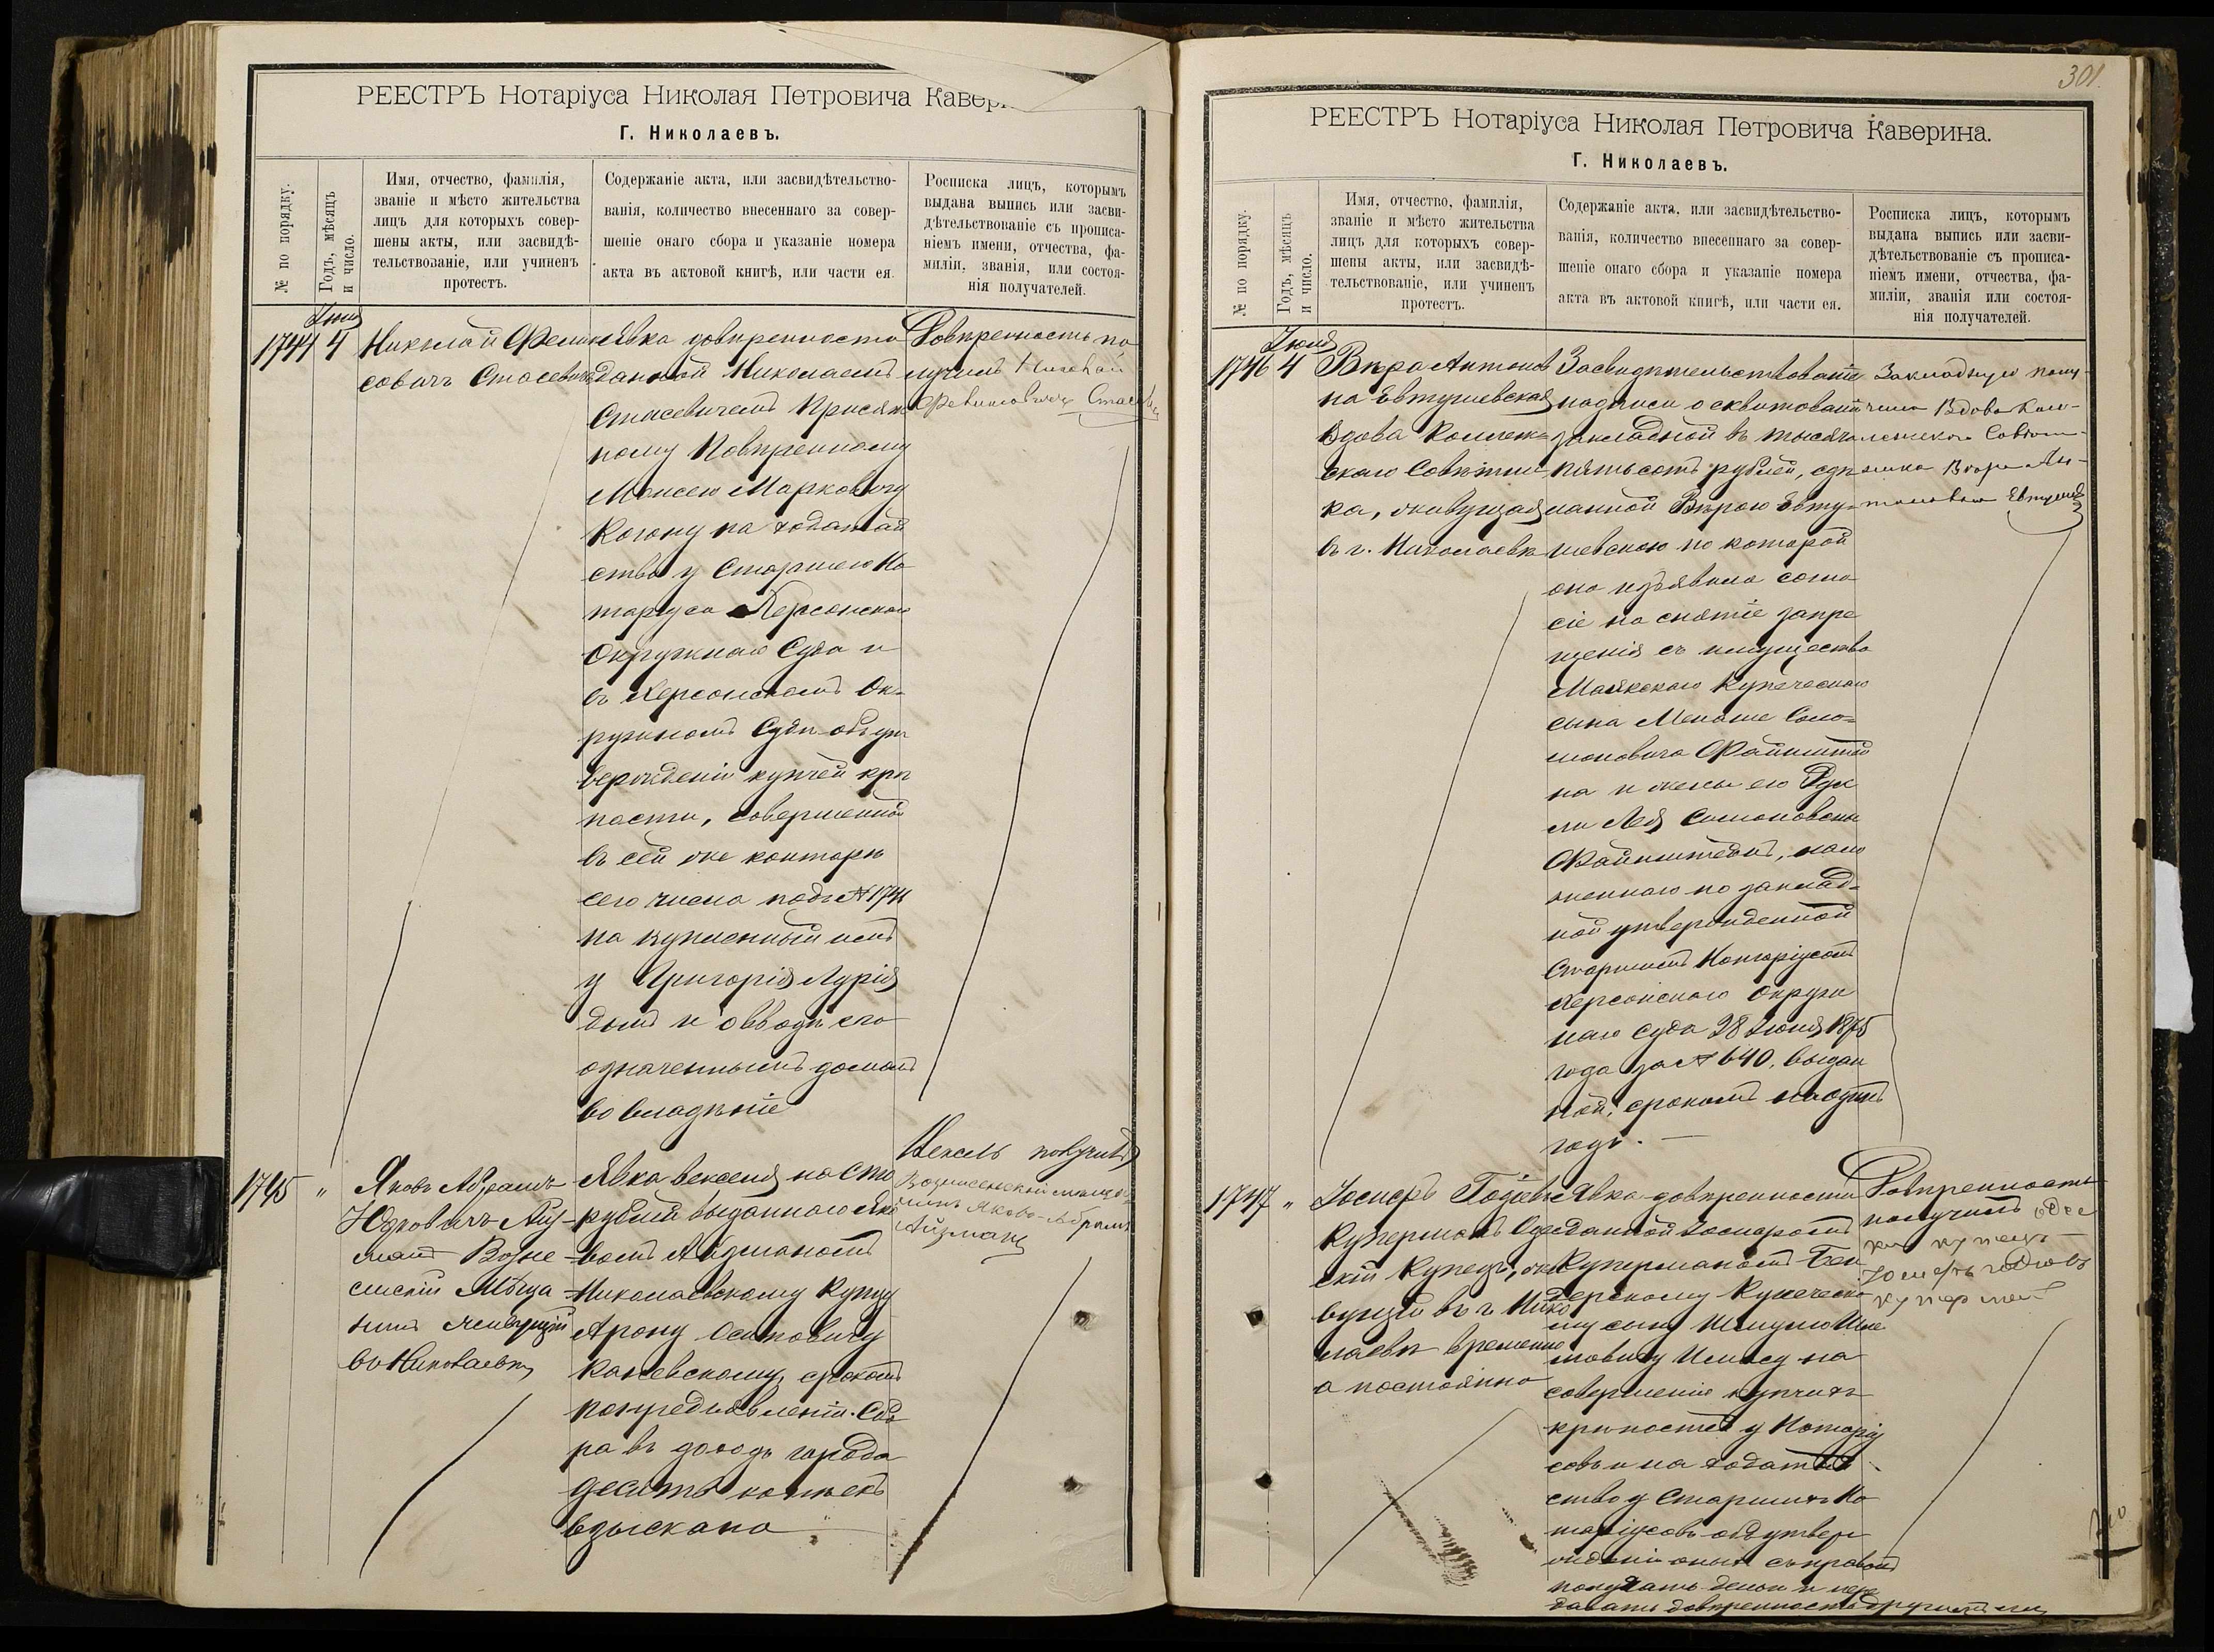 РЕЕСТРЪ Нотаріуса Николая Петровича Кавери
Г. Николаевъ.
№ по порядку.
Годъ, мѣсяцъ
и число.
Имя, отчество, фамилія,
званіе и мѣсто жительства
лицъ для которыхъ совер-
шены акты, или засвидѣ-
тельствованіе, или учиненъ
протестъ.
Содержаніе акта, или засвидѣтельство-
ванія, количество внесеннаго за совер-
шеніе онаго сбора и указаніе номера
акта въ актовой книгѣ, или части ея.
Росписка лицъ, которымъ
выдана выпись или засви-
дѣтельствованіе съ прописа-
ніемъ имени, отчества, фа-
миліи, званія, или состоя-
нія получателей.
Іюня
1744 4
Николай Фели
совичъ Стасевичъ
Явка довѣренности
данной Николаемъ
Стасевичемъ Присяж
ному Повѣренному
Моисею Марковичу
Когону на ходатай
ство у Старшего Но
таріуса Херсонскаго
Окружнаго Суда и
въ Херсонскомъ Ок-
ружномъ Судѣ объ ут
вержденіи купчей крѣ
пости, совершенной
въ сей же конторѣ
сего числа подъ №
на купленный имъ
у Григорія
домъ и о вводѣ его
означеннымъ домомъ
во владѣніе
Довѣренность по
лучилъ Николай
Феликсовичъ
1745 "
Яковъ Абрамъ
Айз-
манъ Возне-
сенскій Мѣща-
нинъ живущій
въ Николаевѣ
Явка векселя на сто
рублей выданнаго Яко
вомъ Айзманомъ
Николаевскому Купцу
Арону Осиповичу
Каневскому, срокомъ
по предъявленіи. Сбо
ра въ доходъ города
десять копѣекъ
взыскано
Вексель получилъ
Вознесенскій мѣща
нинъ Яковъ-Абрамъ
Айзманъ
301.
РЕЕСТРЪ Нотаріуса Николая Петровича Каверина.
Г. Николаевъ.
№ по порядку.
Годъ, мѣсяцъ
и число.
Имя, отчество, фамилія,
званіе и мѣсто жительства
лицъ для которыхъ совер-
шены акты, или засвидѣ-
тельствованіе, или учиненъ
протестъ.
Содержаніе акта, или засвидѣтельство-
ванія, количество внесеннаго за совер-
шеніе онаго сбора и указаніе номера
акта въ актовой книгѣ, или части ея.
Росписка лицъ, которымъ
выдана выпись или засви-
дѣтельствованіе съ прописа-
ніемъ имени, отчества, фа-
миліи, званія или состоя-
нія получателей.
Іюня
1746 4
Вѣра Антонов
на Евтушевская
вдова Коллеж-
скаго Совѣтни-
ка, живущая
въ г. Николаевѣ
Засвидѣтельствованіе
надписи о сквитованіи
закладной въ тысячу
пятьсотъ рублей, сдѣ
ланной Вѣрою Евту-
шевскою по которой
она изъявила согла
сіе на снятіе запре
щенія съ имущества
Маякскаго Купеческаго
сына Менаше Соло-
моновича Файнштей
на и жены его
ли Леи Симоновны
Файнштейнъ, нало
женнаго по заклад-
ной утвержденной
Старшимъ Нотаріусомъ
Херсонскаго Окруж
наго Суда 28 Іюня 1875
года за № 640, выдан
ной, срокомъ на одинъ
годъ. —
Закладную полу-
чила Вдова Кол-
лежскаго Совѣт-
ника Вѣра Ан-
тоновна
1747 "
Іосифъ
Куперманъ Одес
скій Купецъ, жи
вущій въ г. Нико
лаевѣ временно
а постоянно
Явка довѣренности
данной Іосифомъ
Куперманомъ Бен
дерскому Купеческо
му сыну
на
совершеніе купчихъ
крѣпостей у Нотаріу
совъ и на ходатай
ство у Старшихъ Но
таріусовъ объ утвер
жденіи оныхъ съ правомъ
получать деньги и пере
давать довѣренность другимъ
Довѣренность
получилъ Одес
купецъ
Куперманъ